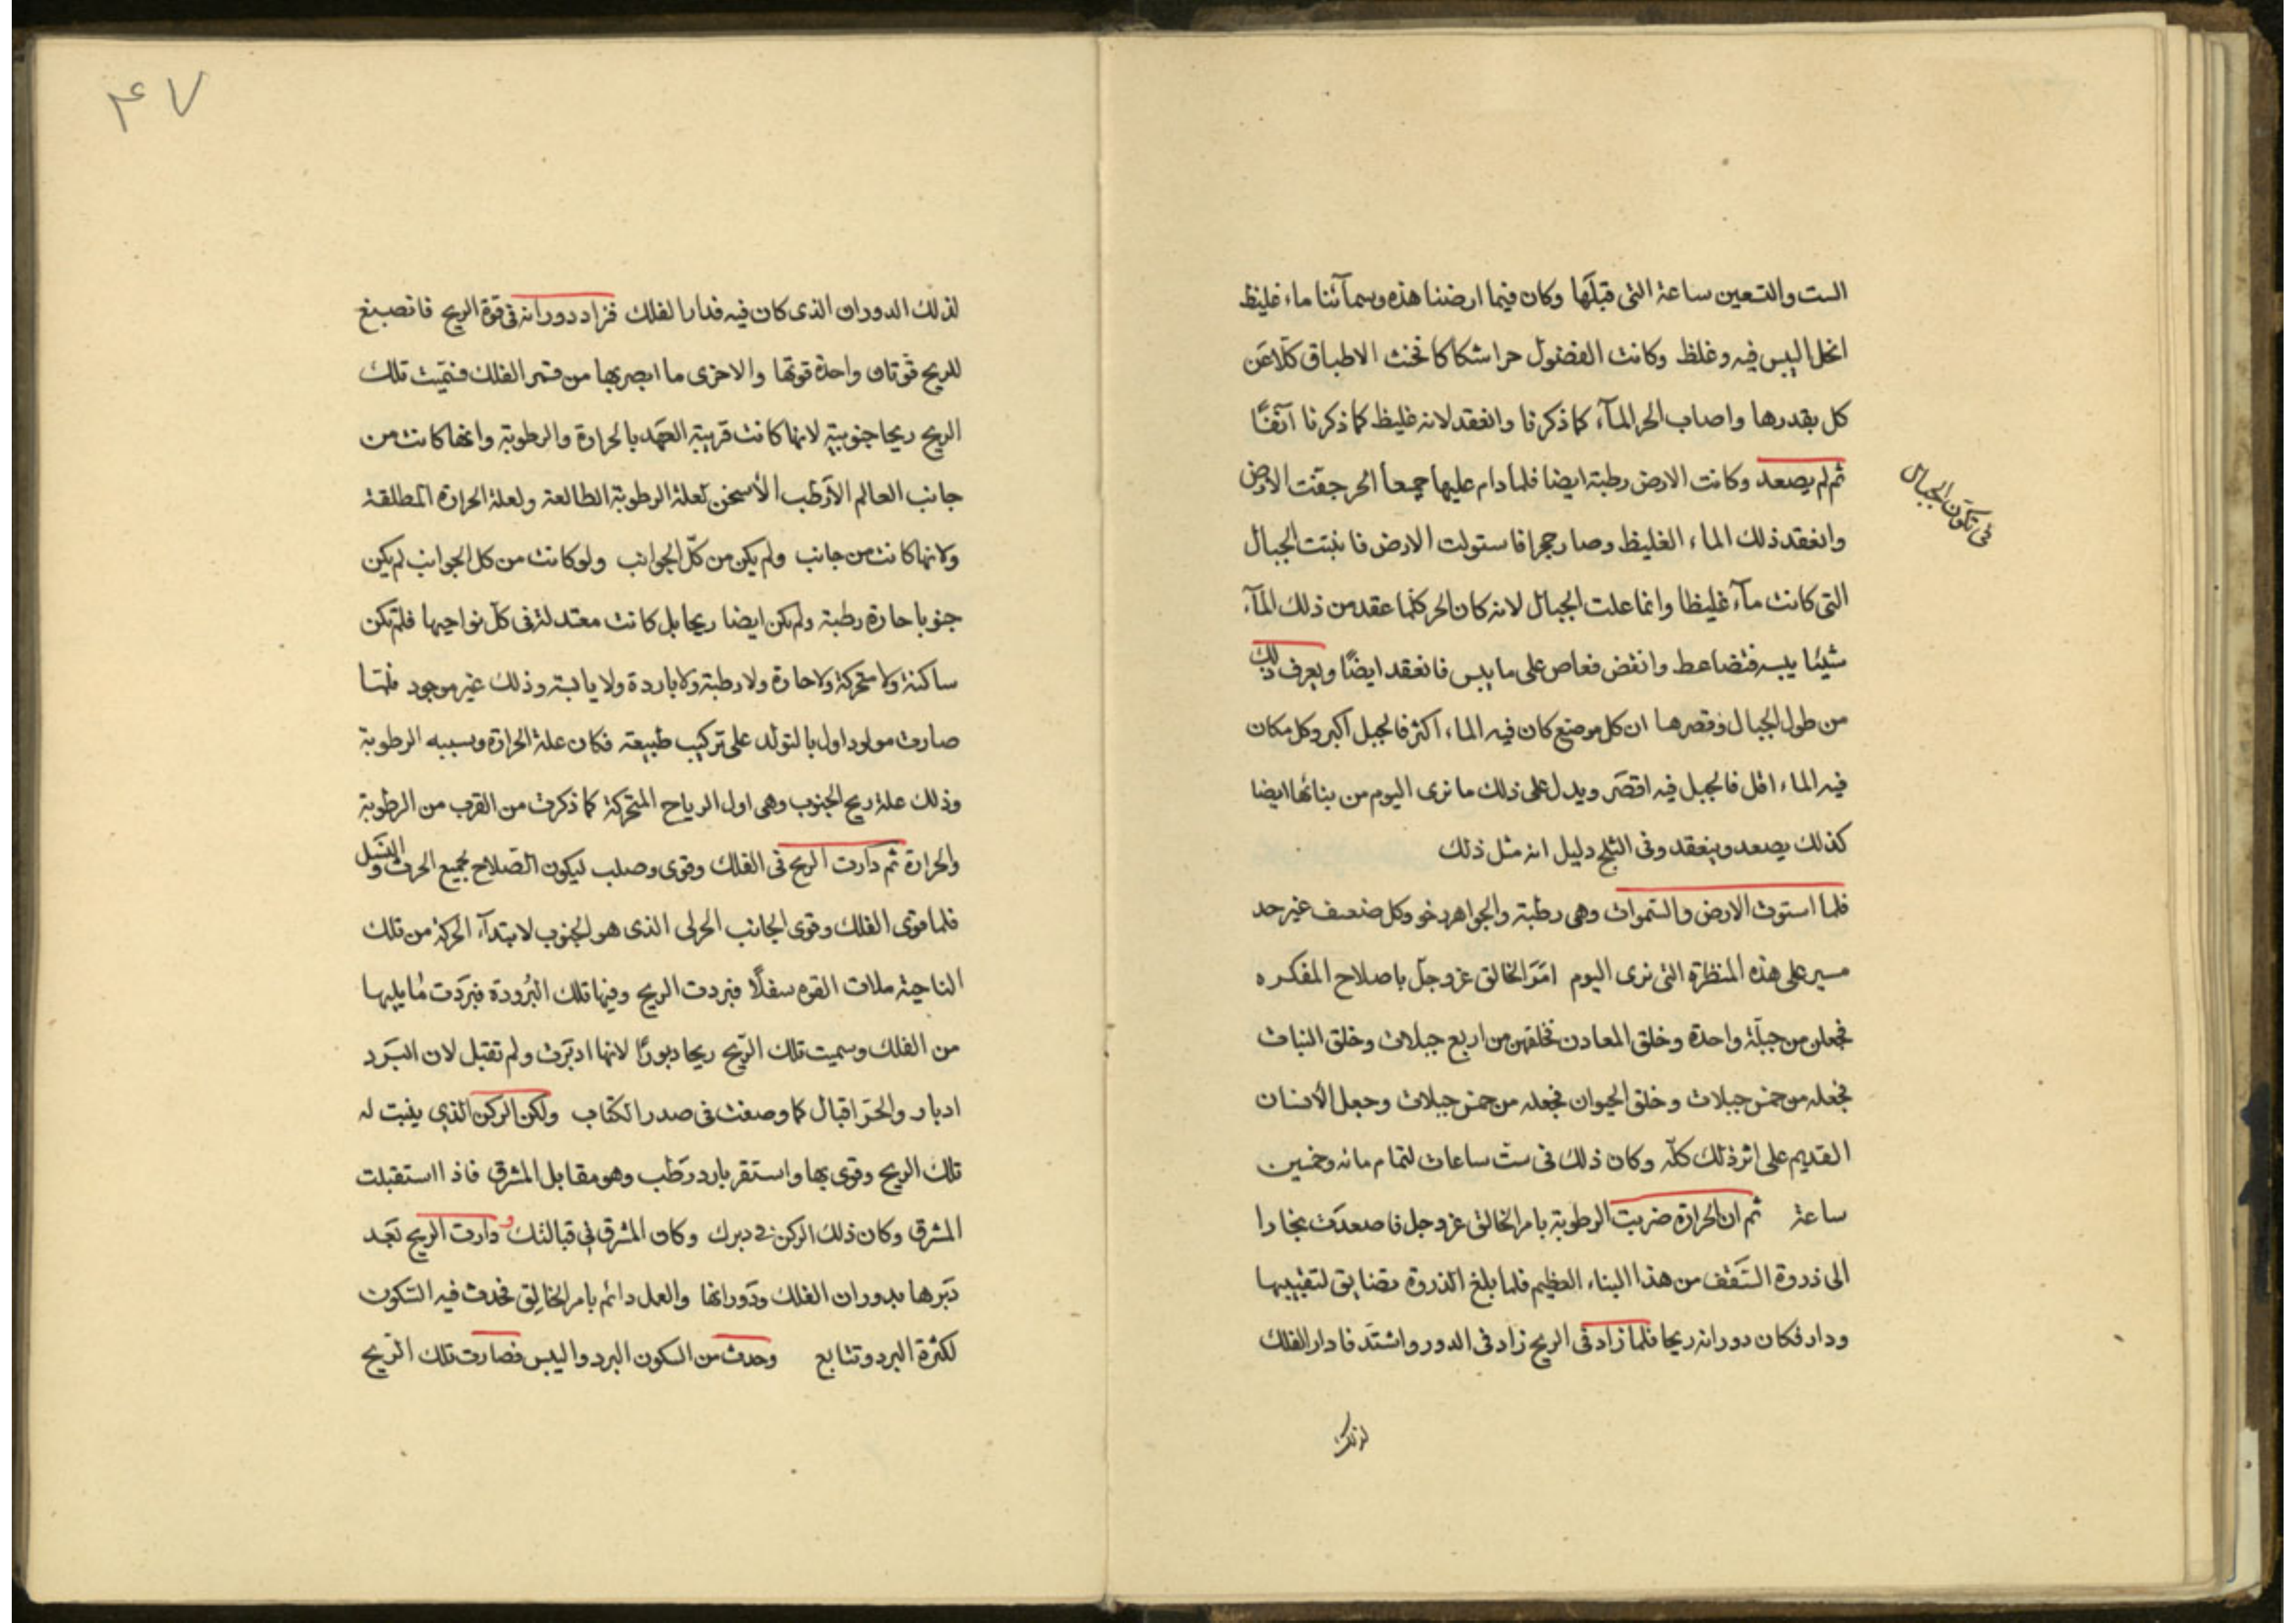 الست والتسعين ساعة التى قبلها وكان فيما ارضنا هذه وسمآئنا ماء غليظ
انحل اليبس فيه وغلظ وكانت الفضول تحت الاطباق كلا عن
كل بقدرها واصاب الحر المآء كما ذكرنا وانعقد لانه غليظ كما ذكرنا آنفًا
ثم لم يصعد وكانت الارض رطبة ايضا فلما دام عليها جميعا الحر جفت الارض
فى تكون الجبال
وانعقد ذلك الماء الغليظ وصار حجرا فاستولت الارض فانبتت الجبال
التى كانت مآء غليظا وانما علت الجبال لانه كان الحر كلما عقد من ذلك المآء
شيئا يبسه فتضاعط وانفض فعاص على ما يبس فانعقد ايضًا ويعرف ذلك
من طول الجبال وقصرها ان كل موضع كان فيه الماء اكثر فالجبل اكبر وكل مكان
فيه الماء اقل فالجبل فيه اقصر ويدل على ذلك ما نرى اليوم من بنائها ايضا
كذلك يصعد وينعقد وفى الثلج دليل انه مثل ذلك
فلما استوت الارض والسموات وهى رطبة والجواهر رخو وكل ضعيف غير حد
مسير على هذه المنظرة التى نرى اليوم امَرَ الخالق عز وجل باصلاح المفكره
فجعلن من جبلة واحدة وخلق المعادن فخلقهن من اربع جبلات وخلق النبات
فجعله من خمس جبلات وخلق الحيوان فجعله من خمس جبلات وجعل الأنسان
القديم على اثر ذلك كلّه وكان ذلك فى ستّ ساعات لتمام مائه وخمسين
ساعة ثم ان الحرارة ضربت الرطوبة بامر الخالق عز وجل فاصعدَت بخارا
الى ذروة السَقف من هذا البناء العظيم فلما بلغ الذروة تضايق لتقبيبها
ودار فكان دورانه ريحا فلما زاد فى الريح زاد فى الدور واشتد فادار الفلك
لذلك
٤٧
لذلك الدوران الذى كان فيه فدار الفلك فزاد دورانه فى قوة الريح فانصبغ
للريح قوتان واحدة قوتها والاخرى ما من قسر الفلك فسميت تلك
الريح ريحا جنوبية لانها كانت قريبة العهد بالحرارة والرطوبة وانها كانت من
جانب العالم الأرطب الأسخن لعلة الرطوبة الطالعة ولعلة الحرارة المطلقة
ولانها كانت من جانب ولم يكن من كلّ الجوانب ولو كانت من كل الجوانب لم يكن
جنوبا حارة رطبة ولم تكن ايضا ريحا بل كانت معتدلة فى كل نواحيها فلم تكن
ساكنة ولا متحركة ولا حارة ولا رطبة ولا باردة ولا يابسة وذلك غير موجود فلما
صارت مولود اول بالتولد على تركيب طبيعته فكان علة الحرارة وبسببه الرطوبة
وذلك علة ريح الجنوب وهى اول الرياح المتحركة كما ذكرت من القرب من الرطوبة
والحرارة ثم دارت الريح فى الفلك وقوى وصلب ليكون الصّلاح بجميع الحرث والنسل
فلما قوى الفلك وقوى الجانب الذى هو الجنوب لابتدآء الحركة من تلك
الناحية ملات القوه سفلًا فبردت الريح وفيها تلك البُرودة فبرَدت مُا يليها
من الفلك وسميت تلك الرّيح ريحا دبورًا لانها ادبَرت ولم تقبل لان البَرد
ادبار والحر اقبال كما وصفت فى صدر الكتاب ولكن الركن الذى ينبت له
تلك الريح وقوى بها واستقر بارد رَطب وهو مقابل المشرق فاذا استقبلت
المشرق وكان ذلك الركن فى دبرك وكان المشرق فى قبالتك ودارت الريح بَعد
دَبرها بدوران الفلك ودَورانها والعمل دائم بامر الخالِق فحدث فيه السّكون
لكثرة البرد وتتابع وحدث من السكون البرد واليبس فصارت تلك الرّيح